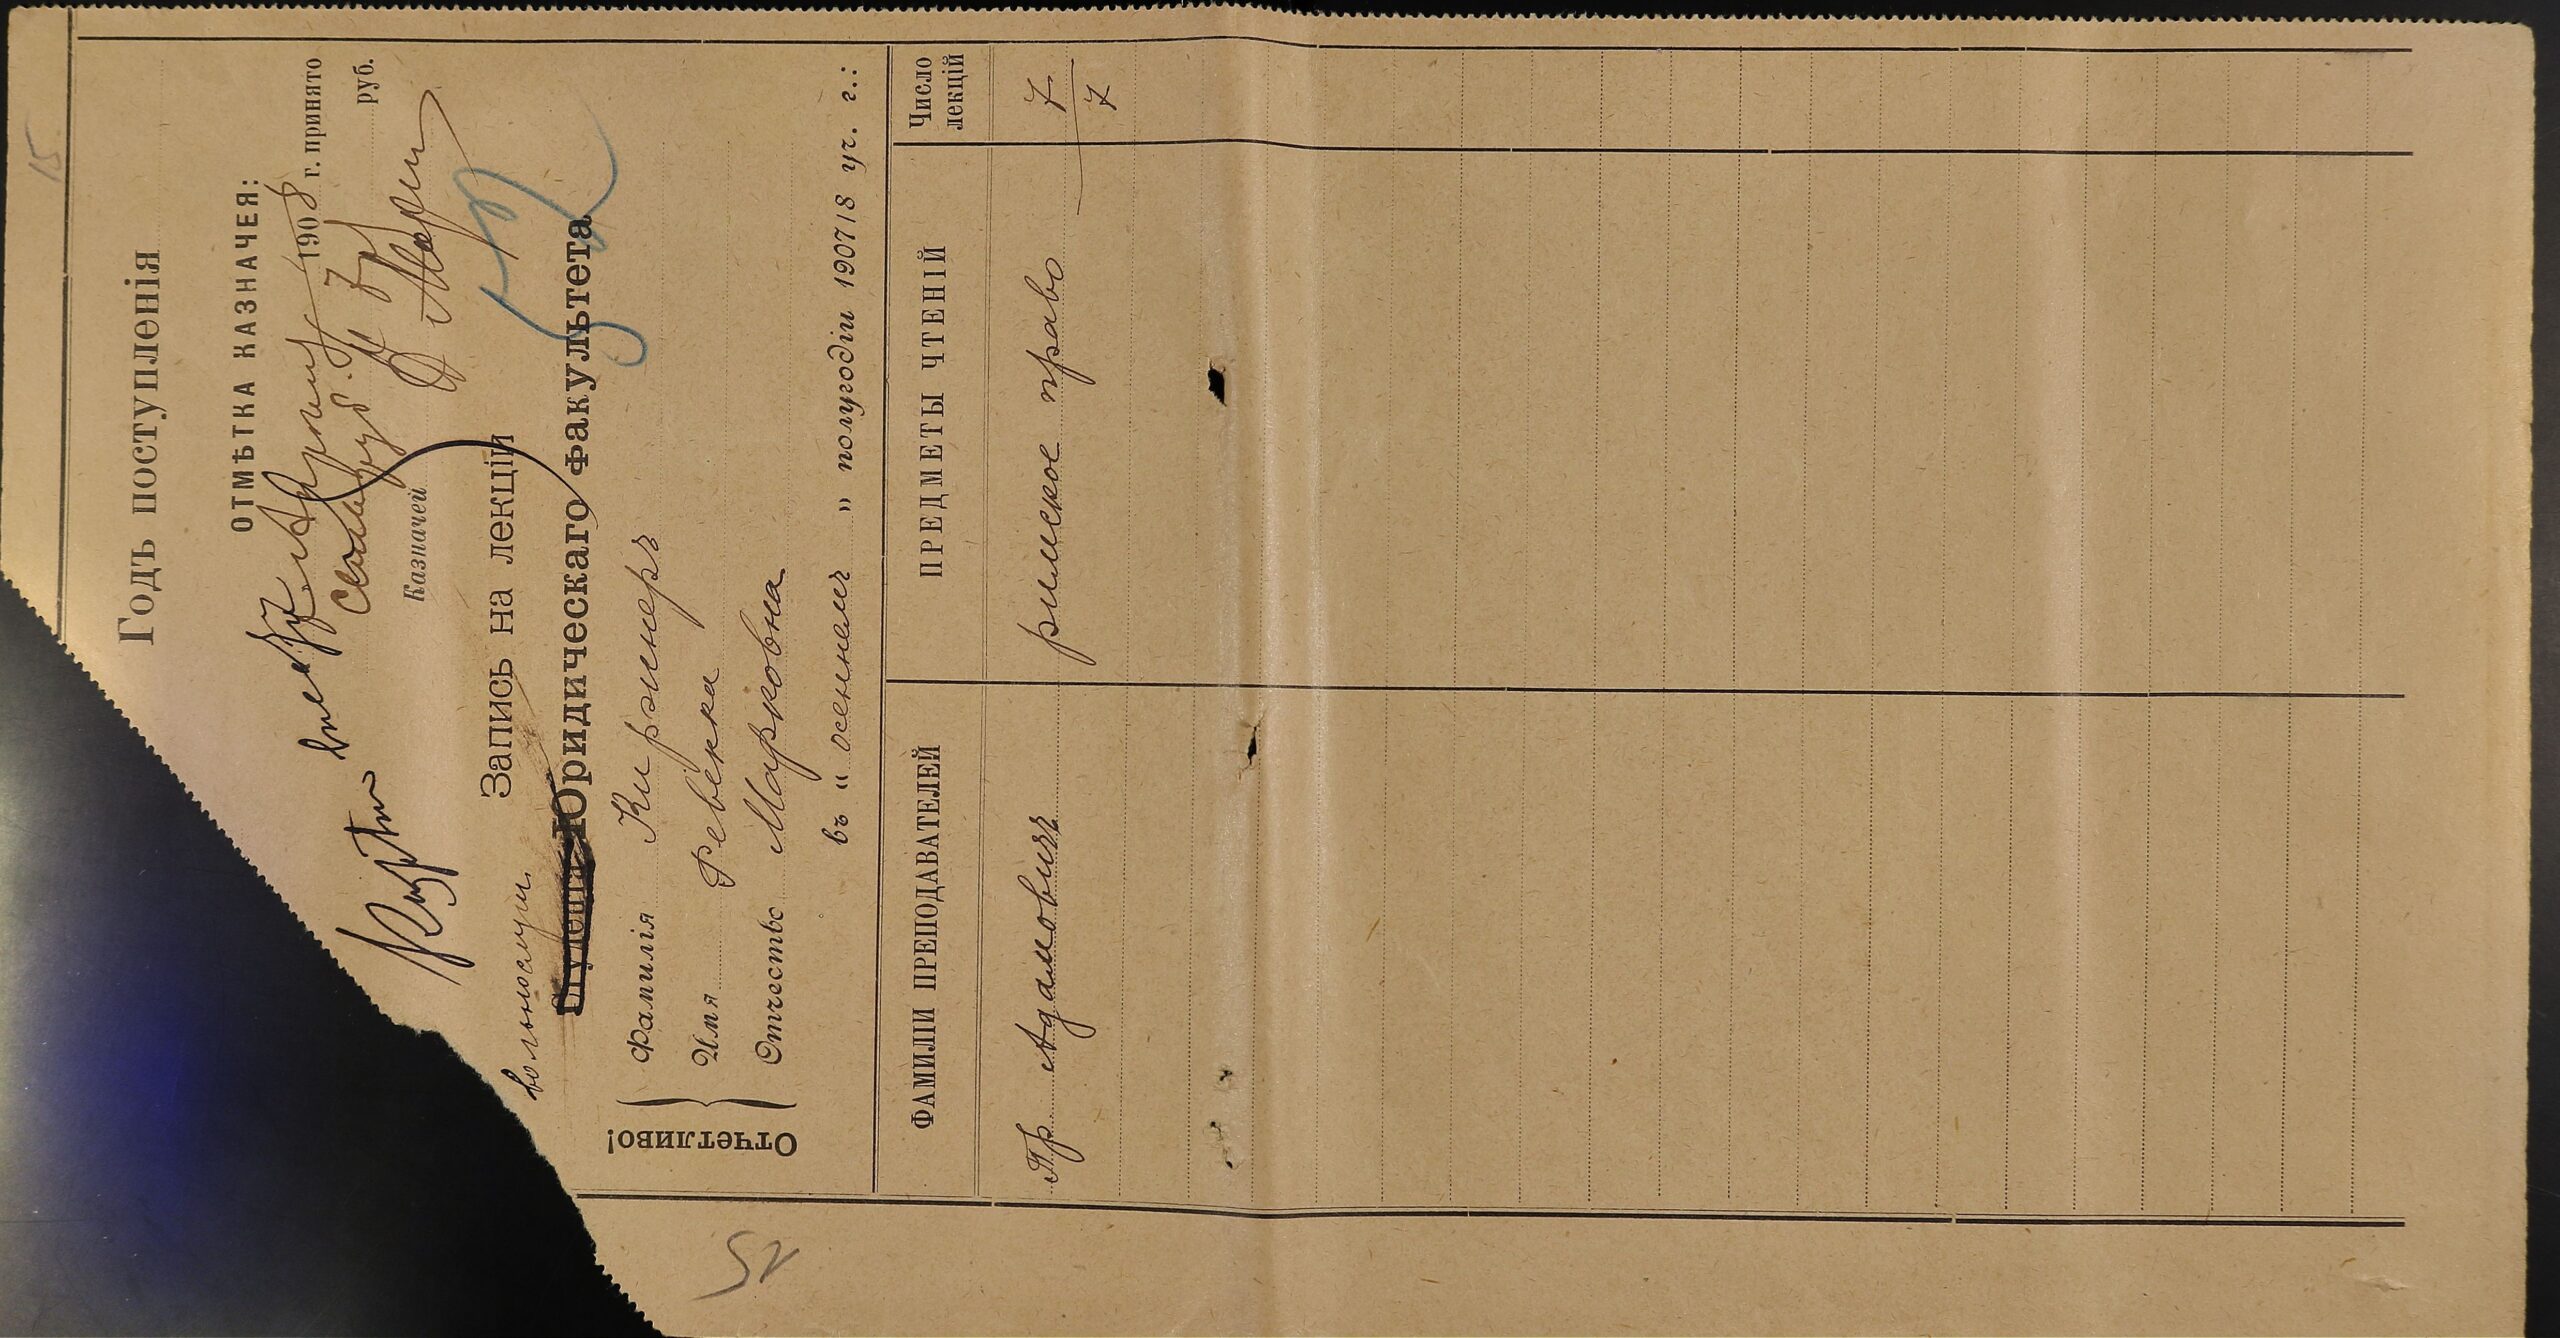 15
Годъ поступленія
ОТМѢТКА КАЗНАЧЕЯ:
1908 г. принято
Семь руб. руб.
Казначей
Запись на лекціи
вольнослуш.
Студента Юридическаго факультета
Отчетливо!
Фамилія Киржнеръ
Имя Ревекка
Отчество Марковна
въ „ осеннемъ " полугодіи 190718 уч. г.:
ФАМИЛІИ ПРЕПОДАВАТЕЛЕЙ ПРЕДМЕТЫ ЧТЕНІЙ Число лекцій
Пр Адамовичъ римское право 7
7
52